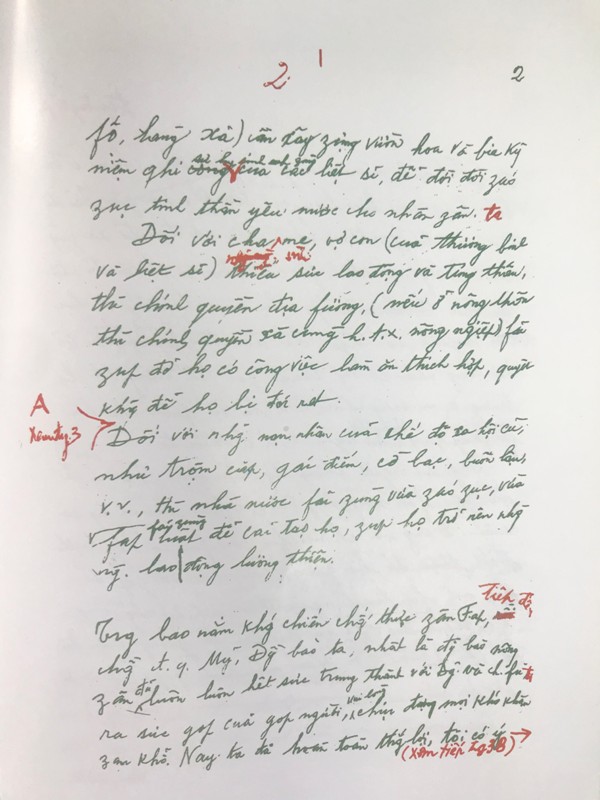 2 1 2
fố, làng xã) cần xây zựng vườn hoa và bia kỷ
niệm ghi sự hy sinh anh zũng của các liệt sĩ, để đời đời záo
zục tinh thần yêu nước cho nhân zân ta
Đối với cha mẹ, vợ con (của thương binh
và liệt sĩ) thiếu sức lao động và túng thiếu,
thì chính quyền địa fương, (nếu ở nông thôn
thì chính quyền xã cùng h.t.x. nông nghiệp) fải
zúp đỡ họ có công việc làm ăn thích hợp, quyết
khg để họ bị đói rét.
A
Đối với nhg nạn nhân của chế độ xã hội cũ,
như trộm cắp, gái điếm, cờ bạc, buôn lậu,
v.v., thì nhà nước fải zùng vừa záo zục, vừa
fải zùng
fáp luật để cải tạo họ, zúp họ trở nên nhg
ng. lao động lương thiện.
Trg bao năm khg chiến chg thực zân Fáp, tiếp đó,
chg đ.q. Mỹ, Đg bào ta, nhất là đg bào nông
zân đã luôn luôn hết sức trung thành với Đg và ch.fủ ta,
ra sức góp của góp người, vui lòng chịu đựng mọi khó khăn
zan khổ. Nay ta đã hoàn toàn thắg lợi, tôi có ý
(xem tiếp tg 3B) →